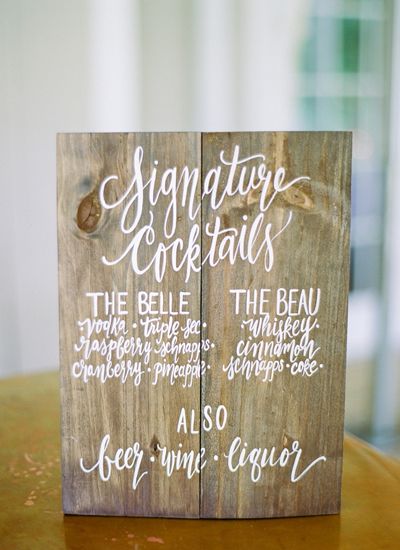 Signature
Cocktails
THE BELLE
vodka • triple sec •
raspberry schnapps •
cranberry • pineapple
THE BEAU
whiskey •
cinnamon
schnapps • coke •
ALSO
beer • wine • liquor